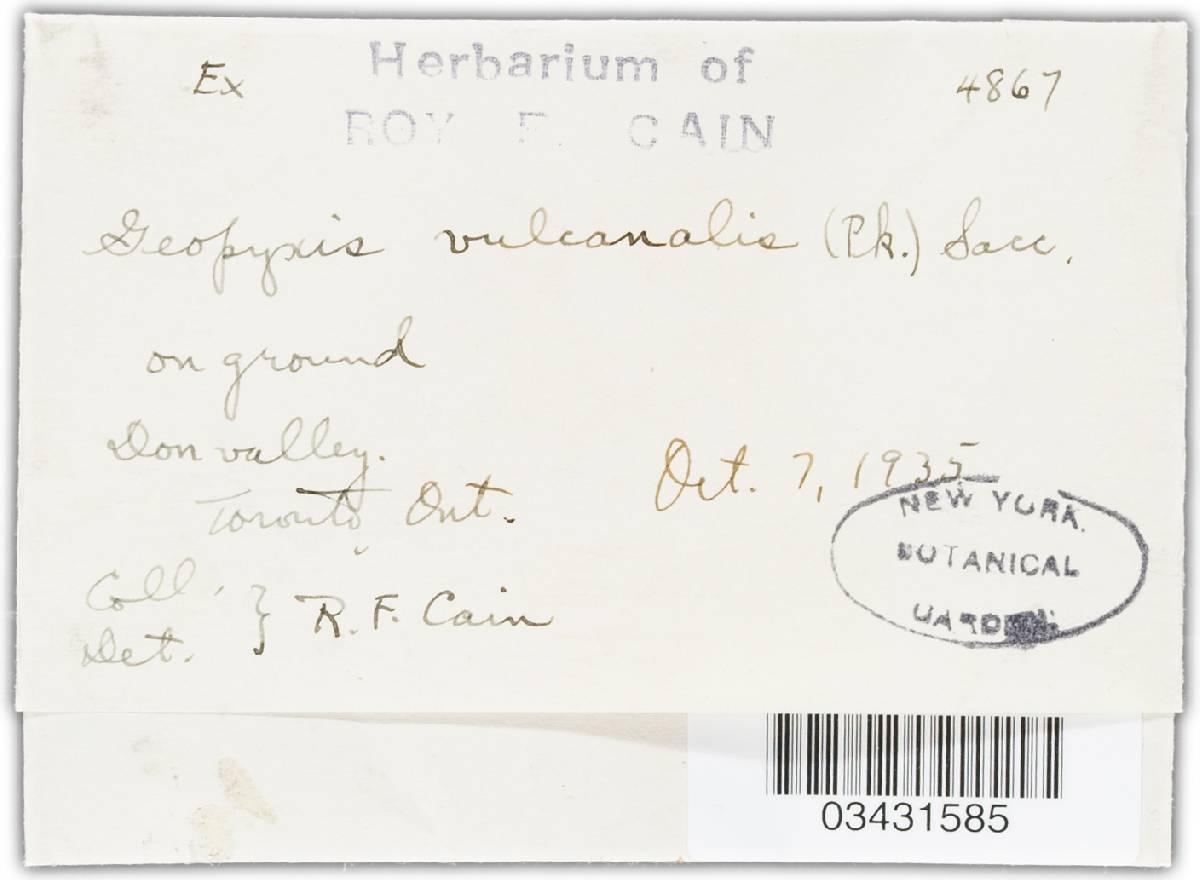 Ex Herbarium of 4867
ROY F. CAIN
Geopyxis vulcanalis (Pk.) Sacc.
on ground
Don valley.
Toronto, Ont. Oct. 7, 1935
Coll. } R. F. Cain
Det.
NEW YORK
BOTANICAL
GARDEN
03431585